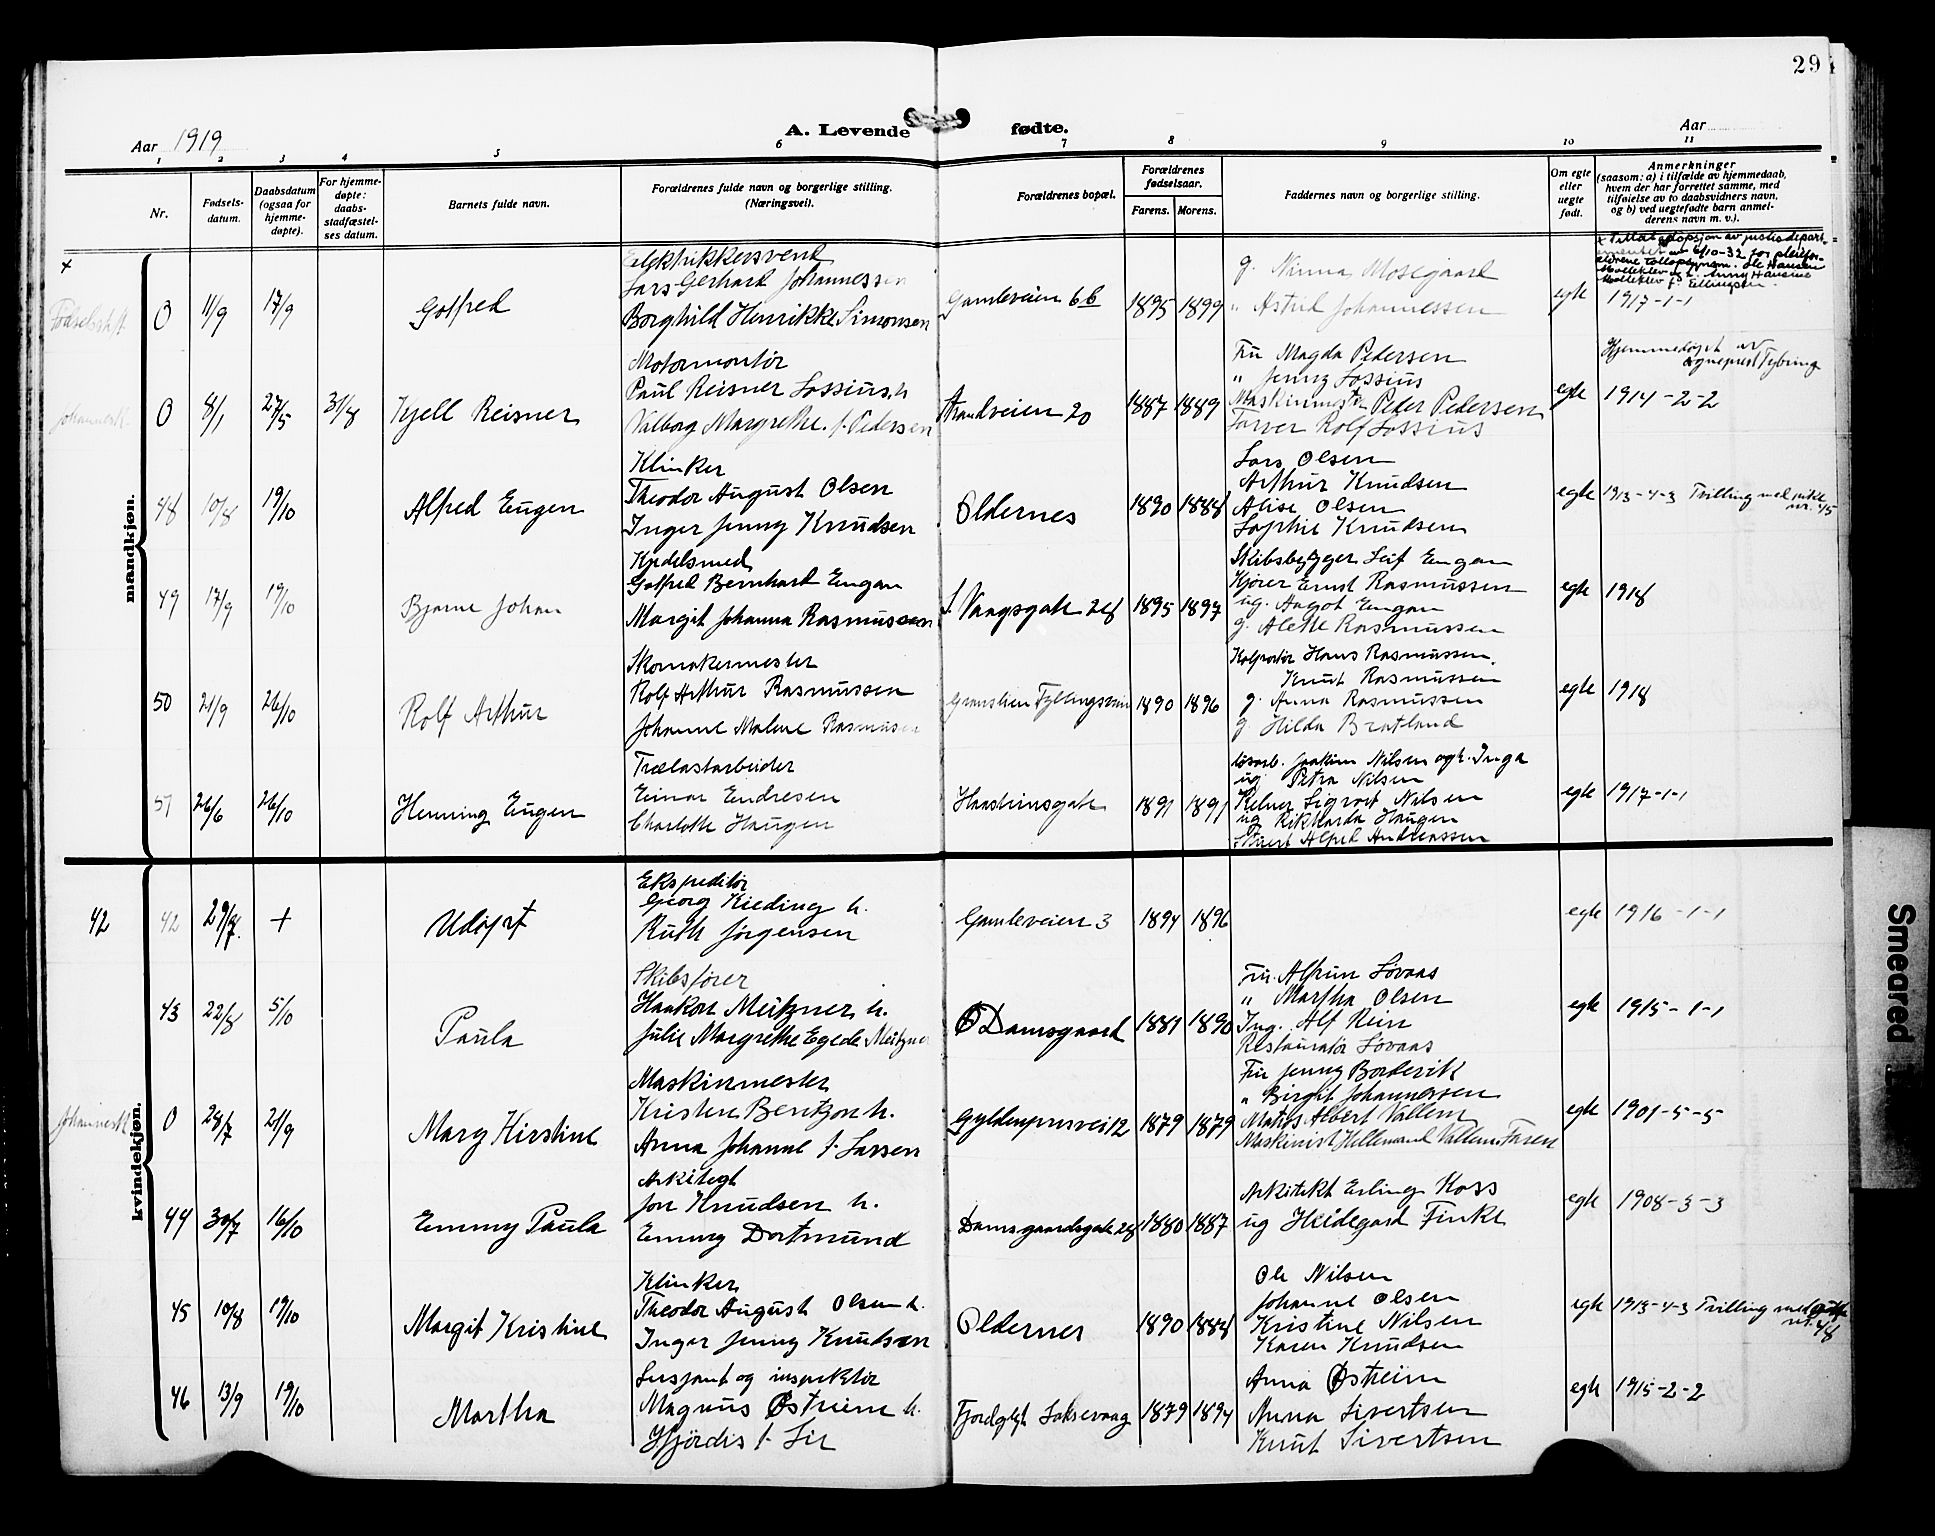 29
Aar 1919
A. Levende fødte.
Aar
1 2 3 4 5 6 7 8 9 10 11
Nr.
Fødsels-datum.
Daabsdatum (ogsaa for hjemme-døpte).
For hjemme-døpte: daabs-stadfæstel-ses datum.
Barnets fulde navn.
Forældrenes fulde navn og borgerlige stilling. (Næringsvei).
Forældrenes bopæl.
Forældrenes fødselsaar.
Farens. Morens.
Faddernes navn og borgerlige stilling.
Om egte eller uegte født.
Anmerkninger
(saasom: a) i tilfælde av hjemmedaab,
hvem der har forrettet samme, med
tilføielse av to daabsvidners navn,
og b) ved uegtefødte barn anmel-
derens navn m. v.).
mandkjøn.
x
Fødselsst.
0 11/9 17/9
Gotfred
Elektrikkersvend
Lars Gerhard Johannessen
Borghild Henrikke Simonsen
Gamleveien 6b
1895 1899
g. Ninna Mosegaard
" Astrid Johannessen
egte
1917-1-1
Johannesk.
0 8/1 27/5 31/8
Kjell Reisner
Motormontør
Paul Reisner Lossius h.
Valborg Margrethe f. Pedersen
Strandveien 20
1887 1889
Fru Magda Pedersen
" Jenny Lossius
Maskinmester Peder Pedersen
Farver Rolf Lossius
egte
Hjemmedøpt av
sogneprest Tybring
1914-2-2
48 10/8 19/10
Alfred Eugen
Klinker
Theodor August Olsen
Inger Jenny Knudsen
Oldernes
1890 1888
Lars Olsen
Arthur Knudsen
Alise Olsen
Sophie Knudsen
egte
1913-4-3 Tvilling med pike
nr. 45
49 17/9 19/10
Bjarne Johan
Kjedelsmed
Gotfred Bernhard Engan
Margit Johanna Rasmussen
S. Vaagsgate 28
1895 1897
Skibsbygger Leif Engan
Kjører Ernst Rasmussen
ug. Aagot Engan
g. Alette Rasmussen
egte
1918
50 21/9 26/10
Rolf Arthur
Skomakermester
Rolf Arthur Rasmussen
Johanne Malene Rasmussen
Granstien Fyllingsveien
1890 1896
Kolportør Hans Rasmussen.
Knut Rasmussen
g. Anna Rasmussen
g. Hilda Bratland
egte
1918
51 26/6 26/10
Henning Eugen
Trælastarbeider
Einar Endresen
Charlotte Haugen
Haasteinsgate
1891 1891
løsarb. Joakim Nilsen og h. Inga
ug. Petra Nilsen
Kelner Sigvart Nilsen
ug Rikharda Haugen
Alfred Andreassen
egte
1917-1-1
kvindekjøn.
42 42 29/7 +
Udøpt
Ekspeditør
Georg Kieding h.
Ruth Jørgensen
Gamleveien 3
1894 1896
egte
1916-1-1
43 22/8 5/10
Paula
Skibsfører
Haakon Meitzner h.
Julie Margrethe Egede Meitzner
Ø Damsgaard
1881 1890
Fru Alfrun Løvaas
" Martha Olsen
Ing. Alf Rein
Restauratør Løvaas
egte
1915-1-1
Johannesk.
0 28/7 21/9
Mary Kirstine
Maskinmester
Kristen Bentzon h.
Anna Johanne f. Larsen
Gyldenprisvei 12
1879 1879
Fru Jenny Borderik
" Birgit Johannessen
Matros Albert Vallem
Maskinist Hellemand Vallem Faren
egte
1901-5-5
44 30/7 16/10
Emmy Paula
Arkitegt
Jon Knudsen h.
Emmy Dortmund
Damsgaardsgate 28
1880 1887
Arkitekt Erling Koss
ug Hildegard Finkt
egte
1908-3-3
45 10/8 19/10
Margit Kristine
Klinker
Theodor August Olsen h.
Inger Jenny Knudsen
Oldernes
1890 1888
Ole Nilsen
Johanne Olsen
Kristine Nilsen
Karen Knudsen
egte
1913-4-3 Tvilling med gutt
nr. 48
46 13/9 19/10
Martha
Sersjant og inspektør
Magnus Østreim h.
Hjördis f. Lie
Fjordgløt Laksevaag
1879 1894
Anna Østreim
Anna Sivertsen
Knut Sivertsen
egte
1915-2-2
Smeared